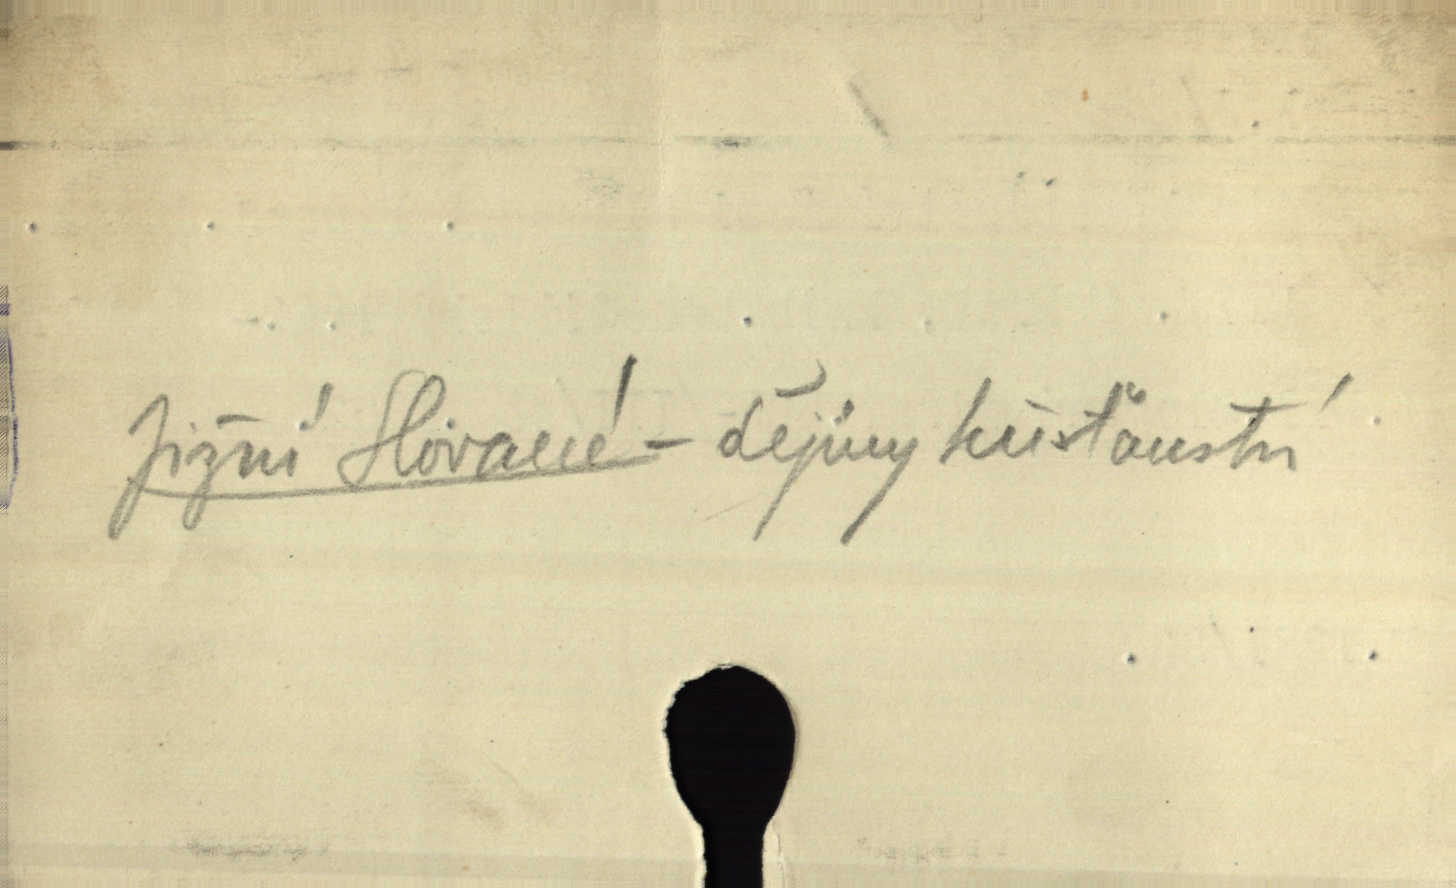 Jižní Slované - dějiny křesťanství